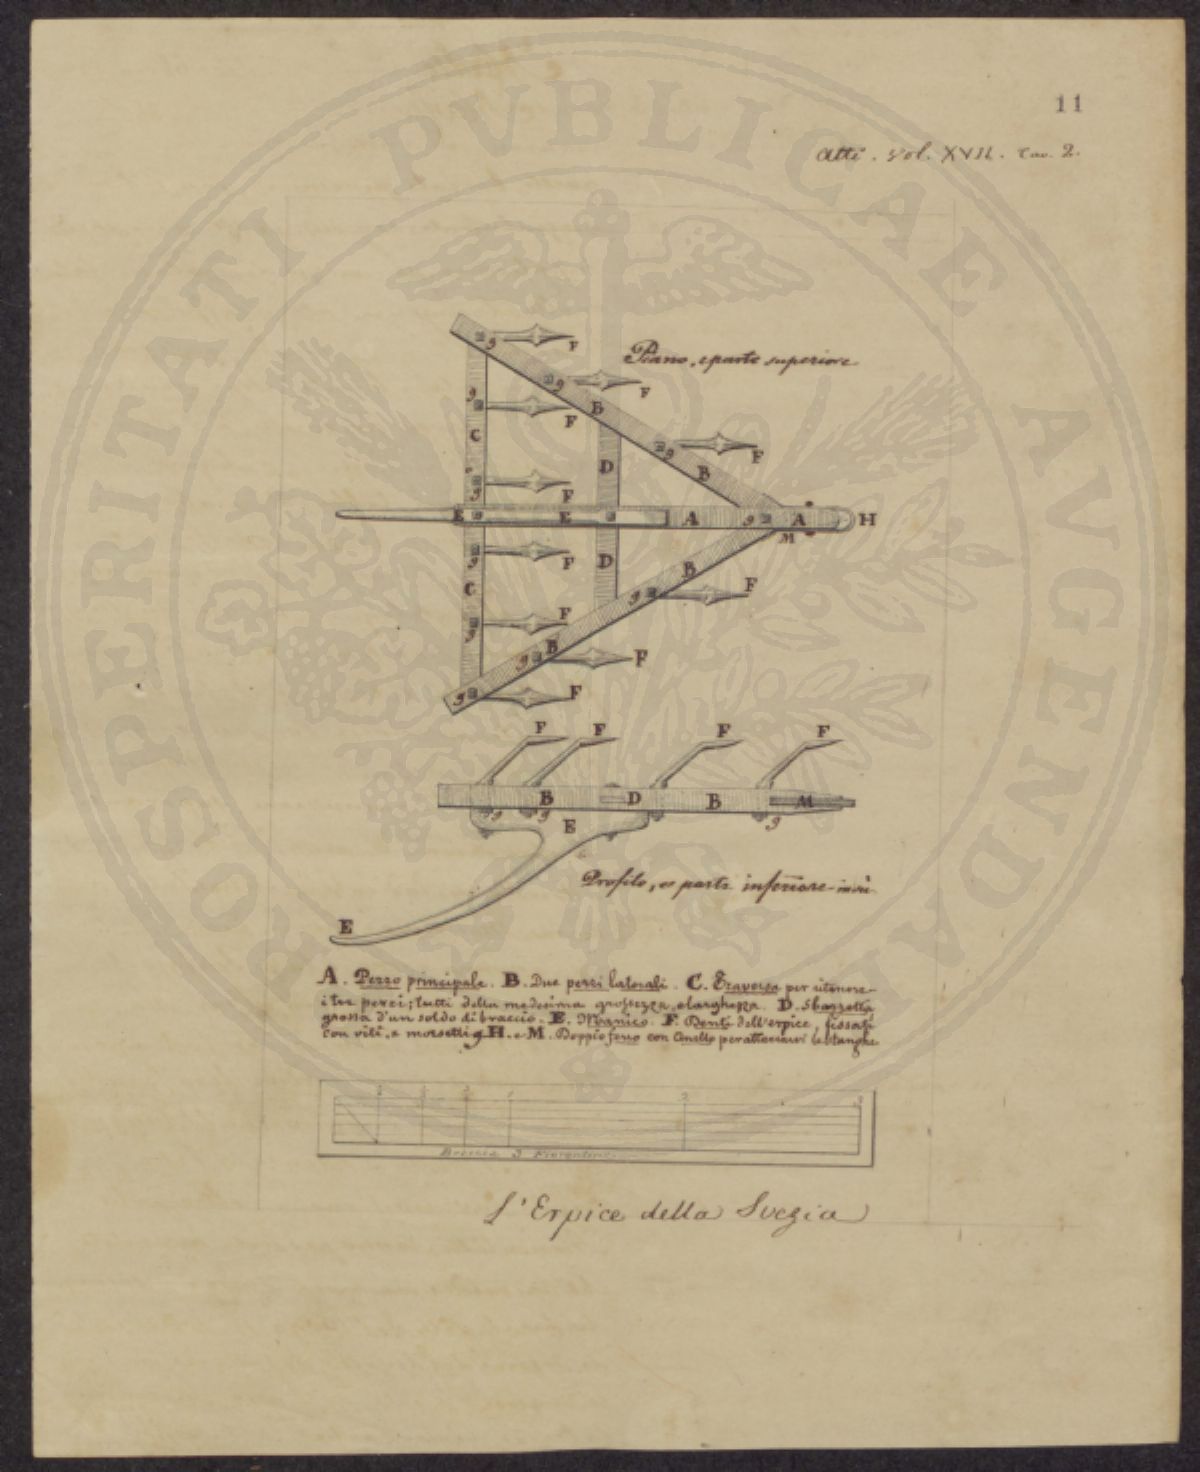 11
Atti. Vol. XVII. Tav. 2.
PROSPERITATI PVBLICAE AVGENDAE
Piano, e parte superiore
g F
g F
g F B
C F
D g F
g F B
E g E A g A H
M
g F D B
C F g F
g B F
g F
F F F F
B D B M
g g E g
Profilo, e parte inferiore in sù
E
A. Pezzo principale. B. Due pezzi laterali. C. Traversa per ritenere
i tre pezzi; tutti della medesima grossezza, e larghezza. D. Sbarretta
grossa d'un soldo di braccio. E. Manico. F. Denti dell'erpice, fissati
con viti, e morsetti g H. e M. Doppio ferro con Anello per attaccarvi le stanghe
1 2 3
Braccia 3 Fiorentine
L'Erpice della Svezia